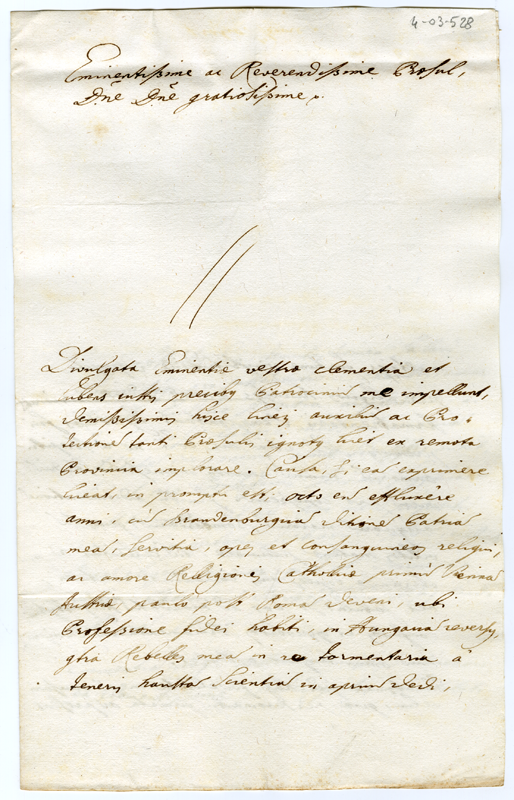 4-03-528
Eminentissime ac Reverendissime Praesul,
Dn̄e Dn̄e gratiosissime
Divulgata Eminentiae vestrae clementia et
lubens iustis precibq Patrocinium me impellunt,
demississimis hisce lineis auxiliū ac Pro-
tectionē tanti Praesulis ignotq licet ex remota
Provincia implorare. Causa, si eā exprimere
liceat, in promptu est; octo en̄ effluxêre
anni, cū Brandenburgicā ditionē Patriā
meā, servitia, opes et consanguineos reliqui,
ac amore Religionis Catholicae primū Viennā
Austriae, paulo post Romā deveni, ubi
Professione fidei habitâ, in Hungariā reversq
contra Rebelles meā in re tormentaria à
teneris haustā scientiā in aprium dedi,